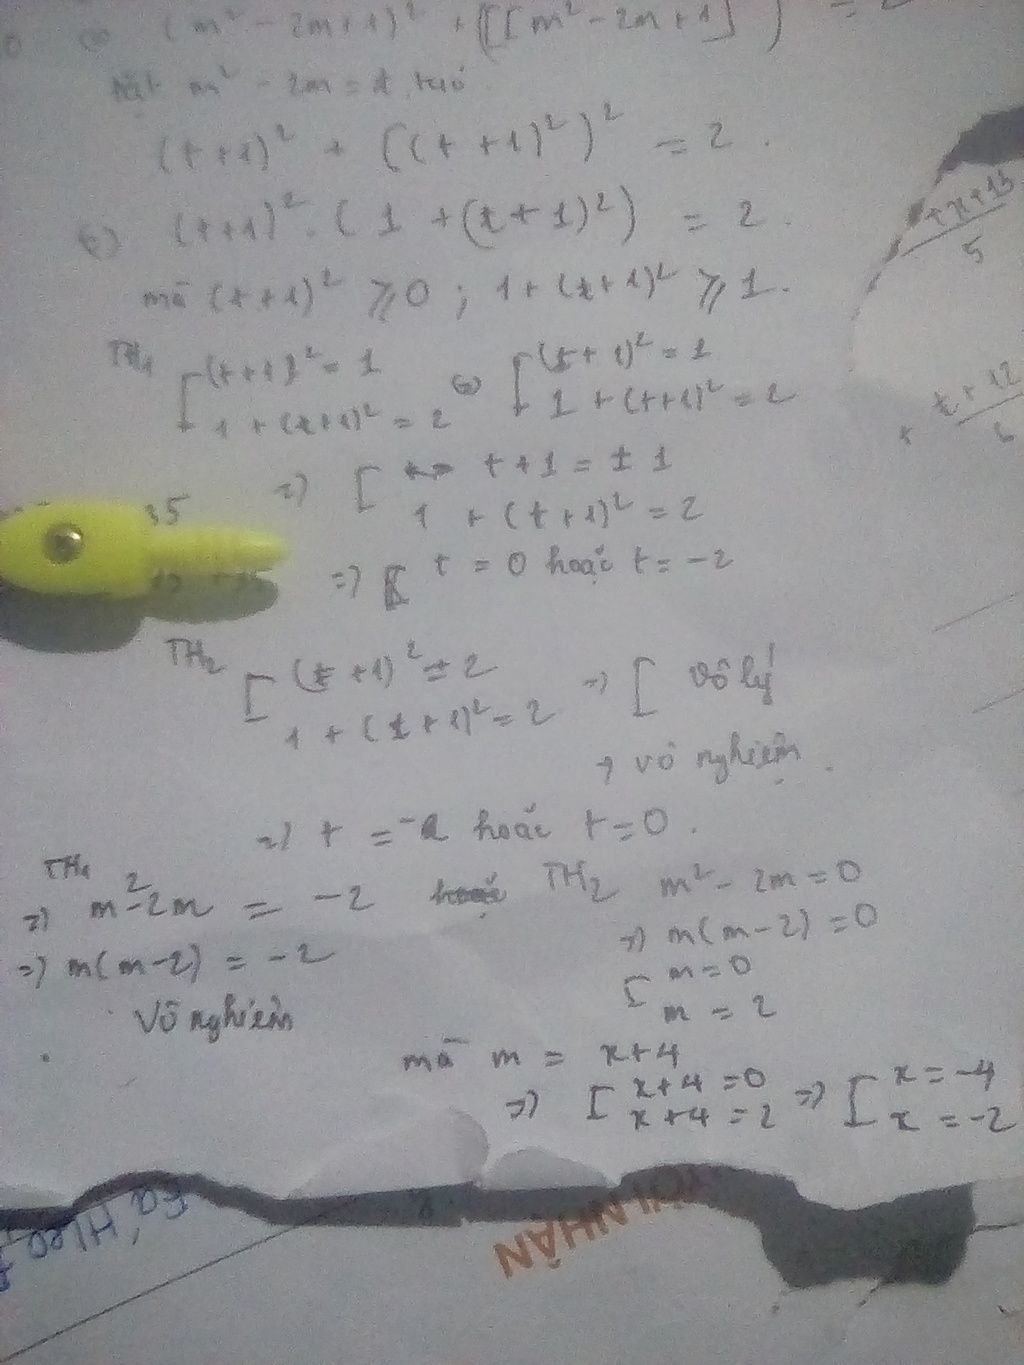 (m² - 2m + 1)² + ([[m² - 2m + 1]
Đặt m² - 2m = t
(t+1)² + ((t+1)²)² = 2.
(t+1)². (1 + (t+1)²) = 2.
mà (t+1)² ⩾ 0 ; 1 + (t+1)² ⩾ 1.
TH1 [ (t+1)² = 1 ⇔ [ (t+1)² = 1
1 + (t+1)² = 2 1 + (t+1)² = 2
=) [ t+1 = ±1
1 + (t+1)² = 2
=) [ t = 0 hoặc t = -2
TH2 [ (t+1)² = 2 => [ vô lý
1 + (t+1)² = 2
→ vô nghiệm.
=) t = -2 hoặc t = 0.
TH1
=) m² - 2m = -2 TH2 m² - 2m = 0
=) m(m-2) = -2 =) m(m-2) = 0
Vô nghiệm [ m = 0
m = 2
mà m = x+4
=) [ x+4 = 0 =) [ x = -4
x+4 = 2 x = -2
+ x+13
5
x+12
6
35
NHẬN